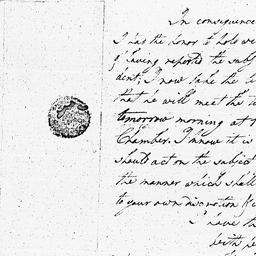 In consequence
I had the honor to hold wi
of having reported the subj
dent, I now take the li
that he will meet the
tomorrow morning at
Chamber. I know it is
should act on the subject
the manner which shall
to your own discretion
I have th
with re